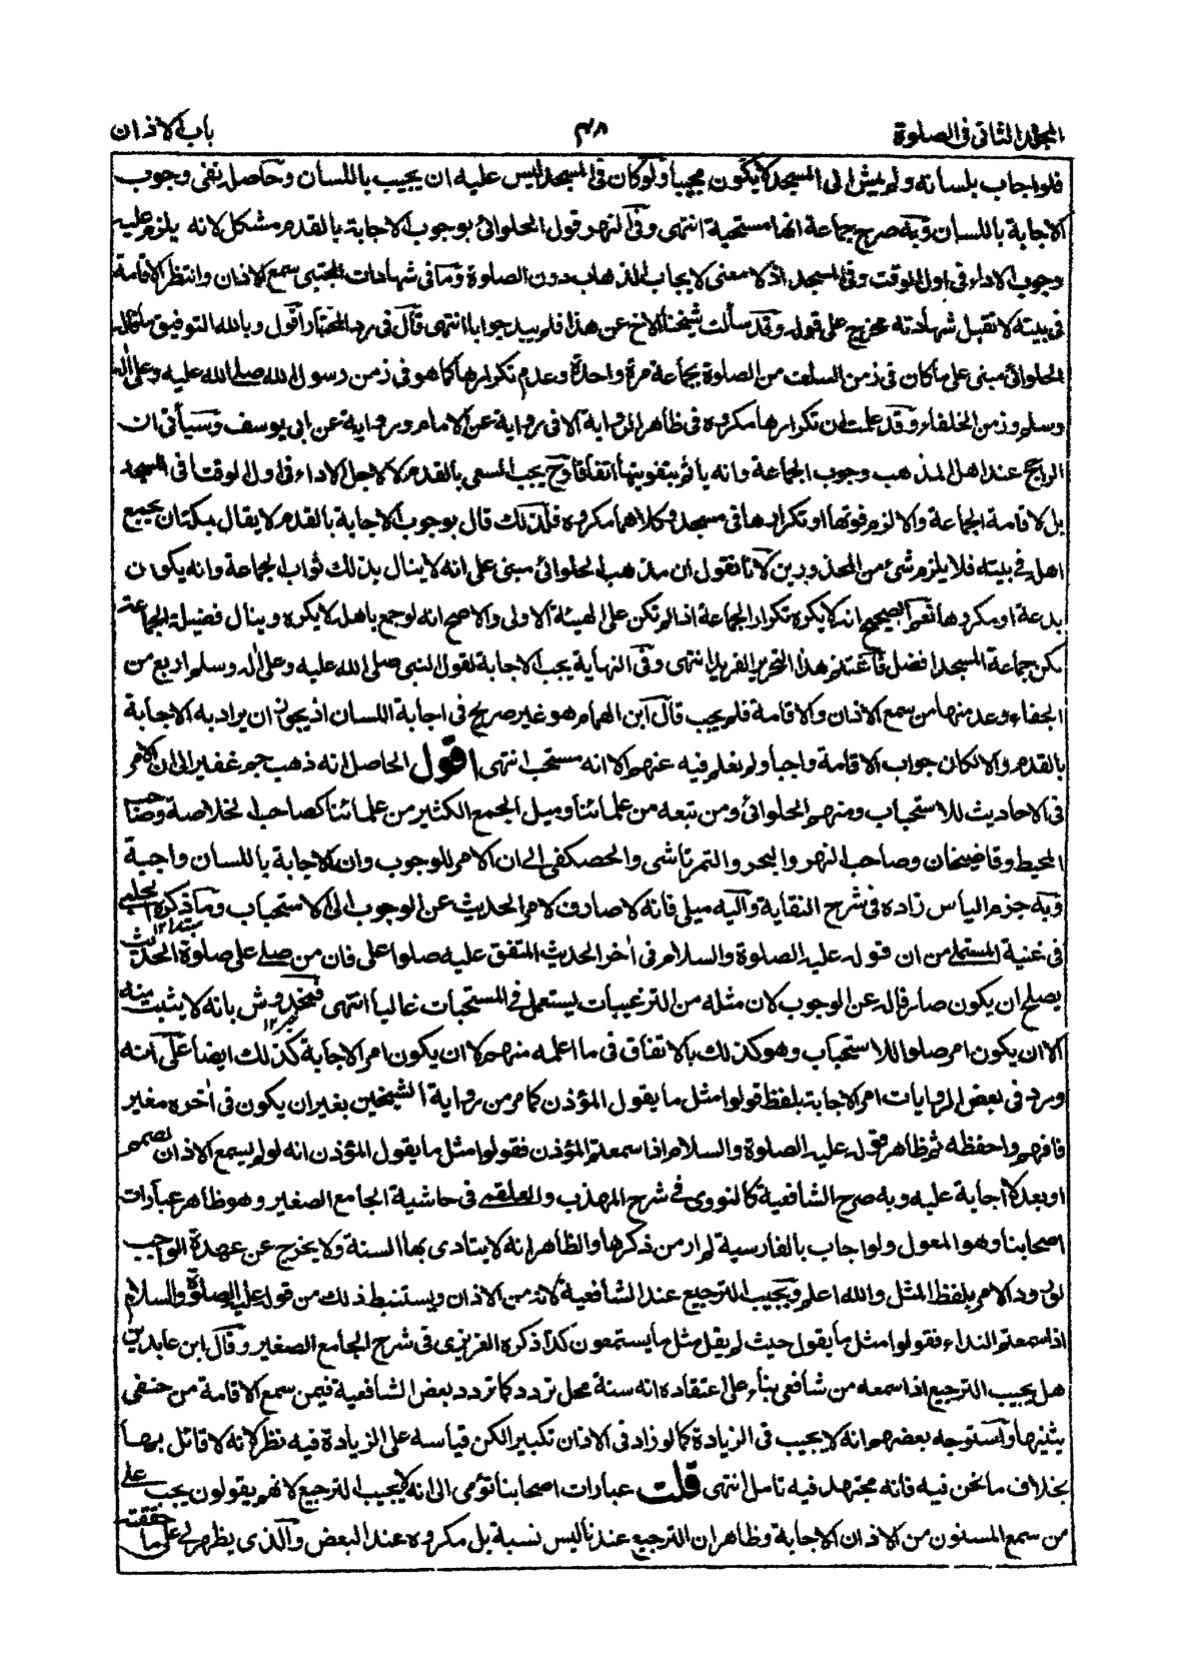 المجلد الثانى فى الصلوة ٤٨ باب الاذان
فلو اجاب بلسانه ولم يمش الى المسجد لا يكون مجيبا ولو كان فى المسجد ليس عليه ان يجيب باللسان وحاصله نفى وجوب
الاجابة باللسان وبه صرح جماعة انها مستحبة انتهى وفى النهر وقول الحلوائى بوجوب الاجابة بالقدم مشكل لانه يلزم عليه
وجوب الاداء فى اول الوقت وفى المسجد اذ لا معنى لايجاب الذهاب دون الصلوة وما فى شهادات المجتبى سمع الاذان وانتظر الاقامة
فى بيته لا تقبل شهادته مخرج على قوله وقد سألت شيخنا الاخ عن هذا فلم يبد جوابا انتهى قال فى رد المحتار اقول وبالله التوفيق ما قاله
الحلوائى مبنى على ما كان فى زمن السلف من الصلوة بجماعة مرة واحدة وعدم تكرارها كما هو فى زمن رسول الله صلى الله عليه وعلى اله
وسلم وزمن الخلفاء وقد علمت ان تكرارها مكروه فى ظاهر الرواية الا فى رواية عن الامام ورواية عن ابى يوسف وسيأتى ان
الراجح عند اهل المذهب وجوب الجماعة وانه يأثم بتفويتها اتفاقا وح يجب السعى بالقدم لا لاجل الاداء فى اول الوقت او فى المسجد
بل لاقامة الجماعة والا لزم فوتها او تكرارها فى مسجد وكلاهما مكروه فلذلك قال بوجوب الاجابة بالقدم لا يقال يمكنه ان يجمع
اهله فى بيته فلا يلزم شئ من المحذورين لانا نقول ان مذهب الحلوائى مبنى على انه لا ينال بذلك ثواب الجماعة وانه يكون
بدعة او مكروها نعم الصحيح انه لا يكره تكرار الجماعة اذا لم تكن على الهيئة الاولى والاصح انه لو جمع باهله لا يكره وينال فضيلة الجماعة
لكن جماعة المسجد افضل فاغتنم هذا التحرير الفريد انتهى وفى النهاية يجب الاجابة لقول النبى صلى الله عليه وعلى اله وسلم اربع من
الجفاء وعد منها من سمع الاذان والاقامة فلم يجب قال ابن الهمام هو غير صريح فى اجابة اللسان اذ يجوز ان يراد به الاجابة
بالقدم والا لكان جواب الاقامة واجبا ولم نعلم فيه عنهم الا انه مستحب انتهى اقول الحاصل انه ذهب جم غفير الى ان الامر
فى الاحاديث للاستحباب ومنهم الحلوائى ومن تبعه من علمائنا وميل الجمع الكثير من علمائنا كصاحب الخلاصة وصاحب
المحيط وقاضيخان وصاحب النهر والبحر والتمرتاشى والحصكفى الى ان الامر للوجوب وان الاجابة باللسان واجبة
وبه جزم الياس زاده فى شرح النقاية واليه ميلى فانه لا صارف لامر الحديث عن الوجوب الى الاستحباب وما ذكره الحلبى
مبتدا ١٢
فى غنية المستملى من ان قوله عليه الصلوة والسلام فى اخر الحديث المتفق عليه صلوا على فان من صلى على صلوة الحديث
يصلح ان يكون صارفا له عن الوجوب لان مثله من الترغيبات يستعمل فى المستحبات غالبا انتهى فمخدوش بانه لا يثبت منه
خبر ١٢
الا ان يكون امر صلوا للاستحباب وهو كذلك بالاتفاق فى ما اعلمه منهم لا ان يكون امر الاجابة كذلك ايضا على انه
ورد فى بعض الروايات امر الاجابة بلفظ قولوا مثل ما يقول المؤذن كما مر من رواية الشيخين بغير ان يكون فى اخره مغير
فافهم واحفظه ثم ظاهر قوله عليه الصلوة والسلام اذا سمعتم المؤذن فقولوا مثل ما يقول المؤذن انه لو لم يسمع الاذان لصمم
او بعد لا اجابة عليه وبه صرح الشافعية كالنووى فى شرح المهذب والعلقمى فى حاشية الجامع الصغير وهو ظاهر عبارات
اصحابنا وهو المعول ولو اجاب بالفارسية لم ار من ذكرها والظاهر انه لا يتادى بها السنة ولا يخرج عن عهدة الواجب
لورود الامر بلفظ المثل والله اعلم ويجيب الترجيع عند الشافعية لانه من الاذان ويستنبط ذلك من قوله عليه الصلوة والسلام
اذا سمعتم النداء فقولوا مثل ما يقول حيث لم يقل مثل ما يستمعون كذا ذكره العزيزى فى شرح الجامع الصغير وقال ابن عابدين
هل يجيب الترجيع اذا سمعه من شافعى بناء على اعتقاده انه سنة محل تردد كما تردد بعض الشافعية فيمن سمع الاقامة من حنفى
يثنيها واستوجه بعضهم انه لا يجيب فى الزيادة كما لو زاد فى الاذان تكبيرا لكن قياسه على الزيادة فيه نظر لانه لا قائل بها
بخلاف ما نحن فيه فانه مجتهد فيه تامل انتهى قلت عبارات اصحابنا تؤمى الى انه لا يجيب الترجيع لانهم يقولون يجب على
من سمع المسنون من الاذان الاجابة وظاهر ان الترجيع عندنا ليس نسبة بل مكروه عند البعض والذى يظهر لى على ما حققته